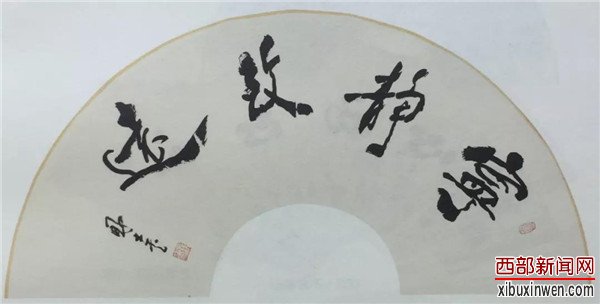 寧靜致遠
西部新闻网
xibuxinwen.com